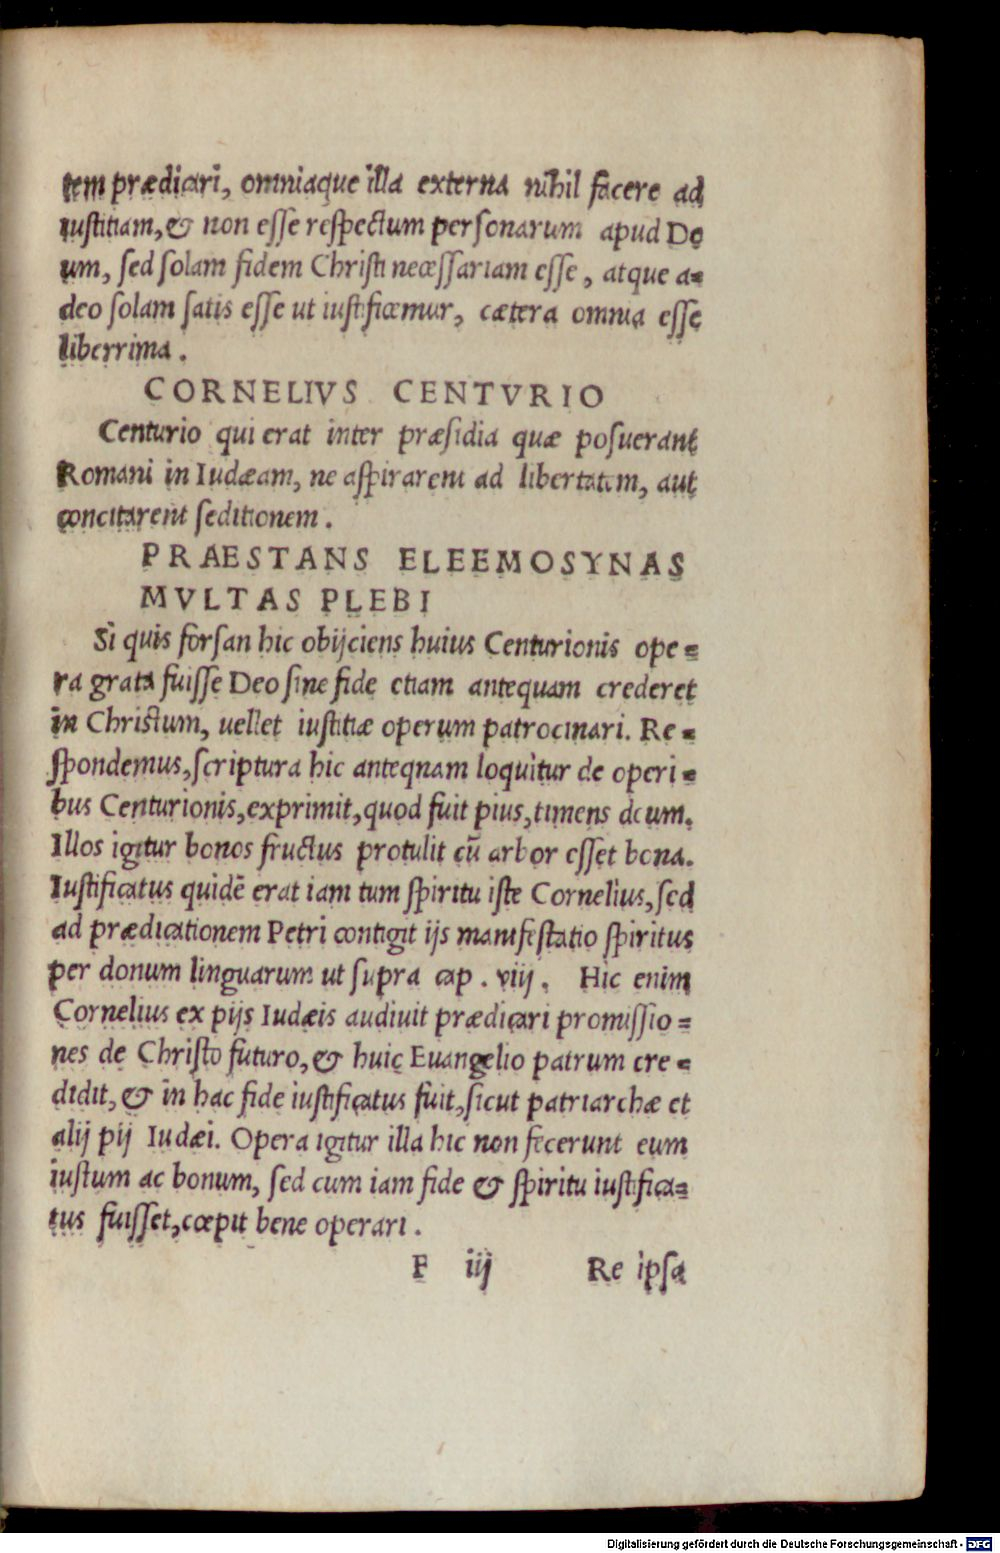 tem prædicari, omniaque illa externa nihil facere ad
iustitiam, & non esse respectum personarum apud De
um, sed solam fidem Christi necessariam esse, atque a=
deo solam satis esse ut iustificemur, cætera omnia esse
liberrima.
CORNELIVS CENTVRIO
Centurio qui erat inter præsidia quæ posuerant
Romani in Iudæam, ne aspirarent ad libertatem, aut
concitarent seditionem.
PRAESTANS ELEEMOSYNAS
MVLTAS PLEBI
Si quis forsan hic obijciens huius Centurionis ope=
ra grata fuisse Deo sine fide etiam antequam crederet
in Christum, uellet iustitiæ operum patrocinari. Re=
spondemus, scriptura hic anteqnam loquitur de operi=
bus Centurionis, exprimit, quod fuit pius, timens deum.
Illos igitur bonos fructus protulit cū arbor esset bona.
Iustificatus quidē erat iam tum spiritu iste Cornelius, sed
ad prædicationem Petri contigit ijs manifestatio spiritus
per donum linguarum ut supra cap. viij. Hic enim
Cornelius ex pijs Iudæis audiuit prædicari promissio=
nes de Christo futuro, & huic Euangelio patrum cre=
didit, & in hac fide iustificatus fuit, sicut patriarchæ et
alij pij Iudæi. Opera igitur illa hic non fecerunt eum
iustum ac bonum, sed cum iam fide & spiritu iustifica=
tus fuisset, cœpit bene operari.
F iij Re ipsa
Digitalisierung gefördert durch die Deutsche Forschungsgemeinschaft - DFG